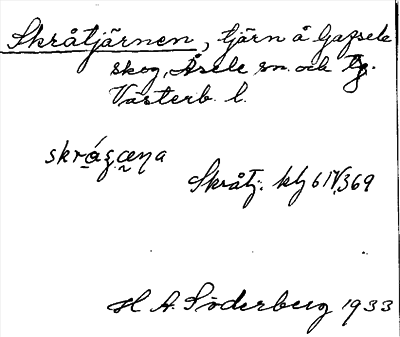 Skråtjärnen, tjärn å Gafsele
skog, Åsele sn. och tg.
Västerb. l.
skrágæɳa
Skråtj. klj 6 IV, 369
H A. Söderberg 1933